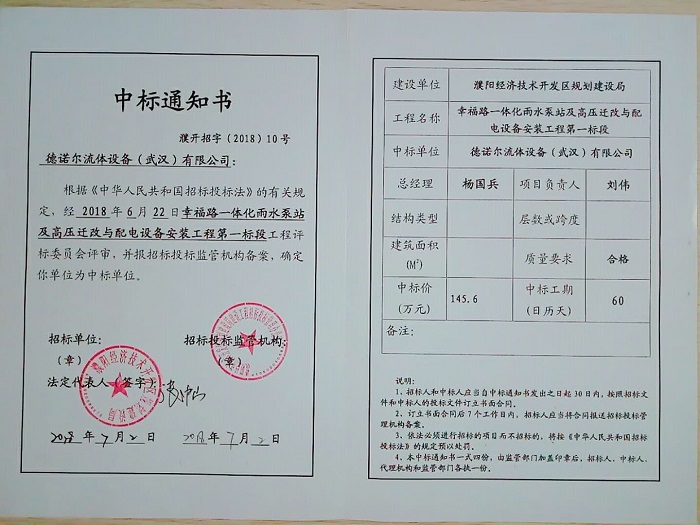 中标通知书
濮开招字（2018）10号
德诺尔流体设备（武汉）有限公司：
根据《中华人民共和国招标投标法》的有关规
定，经 2018 年 6 月 22 日幸福路一体化雨水泵站
及高压迁改与配电设备安装工程第一标段工程评
标委员会评审，并报招标投标监管机构备案，确定
你单位为中标单位。
招标单位： 招标投标监管机构：
（章） （章）
法定代表人（签字）
2018 年 7 月 2 日 2018 年 7 月 2 日
濮阳经济技术开发区规划建设局
建设单位 濮阳经济技术开发区规划建设局
工程名称 幸福路一体化雨水泵站及高压迁改与配
电设备安装工程第一标段
中标单位 德诺尔流体设备（武汉）有限公司
总经理 杨国兵 项目负责人 刘伟
结构类型 层数或跨度
建筑面积
(M²) 质量要求 合格
中标价
(万元) 145.6 中标工期
(日历天) 60
备注：
说明：
1、招标人和中标人应当自中标通知书发出之日起 30 日内，按照招标文
件和中标人的投标文件订立书面合同。
2、订立书面合同后 7 个工作日内，招标人应当将合同报送招标投标管
理机构备案。
3、依法必须进行招标的项目而不招标的，将按《中华人民共和国招标
投标法》的规定予以处罚。
4、本中标通知书一式四份，由监管部门加盖印章后，招标人、中标人、
代理机构和监管部门各执一份。